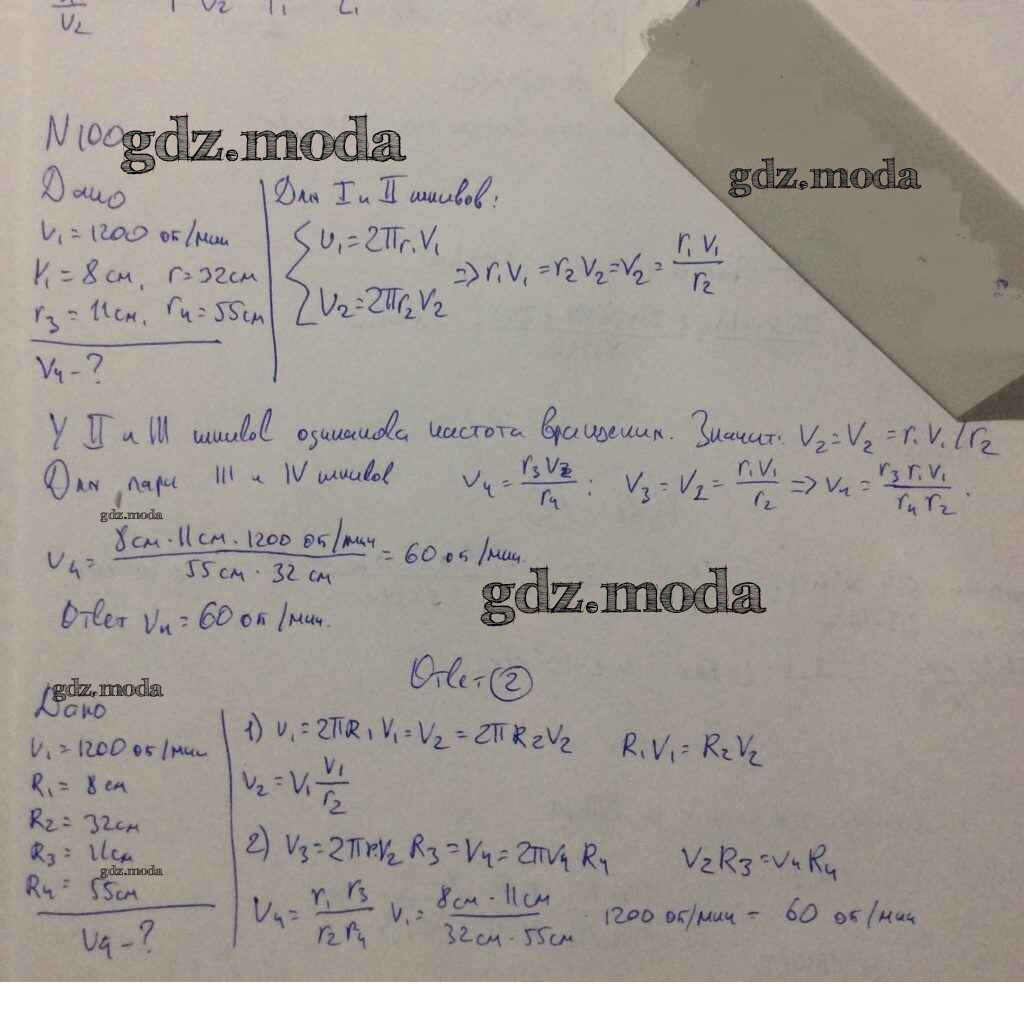 V₂
N 100
gdz.moda
gdz.moda
Дано
ν₁ = 1200 об/мин
r₁ = 8 см, r = 32 см
r₃ = 11 см, r₄ = 55 см
ν₄ - ?
Для I и II шкивов:
υ₁ = 2πr₁ν₁
υ₂ = 2πr₂ν₂
=> r₁ν₁ = r₂ν₂ = ν₂ = r₁ν₁/r₂
У II и III шкивов одинакова частота вращения. Значит: ν₂ = ν₂ = r₁ν₁/r₂
Для пары III и IV шкивов ν₄ = r₃ν₂/r₄; ν₃ = ν₂ = r₁ν₁/r₂ => ν₄ = r₃r₁ν₁/r₄r₂.
gdz.moda
ν₄ = 8 см · 11 см · 1200 об/мин / 55 см · 32 см = 60 об/мин.
gdz.moda
Ответ ν₄ = 60 об/мин.
Ответ (2)
gdz.moda
Дано
ν₁ = 1200 об/мин
R₁ = 8 см
R₂ = 32 см
R₃ = 11 см
gdz.moda
R₄ = 55 см
ν₄ - ?
1) υ₁ = 2πR₁ν₁ = υ₂ = 2πR₂ν₂ R₁ν₁ = R₂ν₂
ν₂ = ν₁ v₁/r₂
2) υ₃ = 2πrν₂R₃ = υ₄ = 2πν₄R₄ ν₂R₃ = ν₄R₄
ν₄ = r₁r₃/r₂r₄ ν₁ = 8 см · 11 см / 32 см · 55 см · 1200 об/мин = 60 об/мин